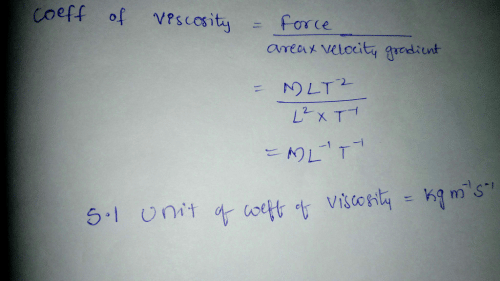 coeff of viscosity = Force
area x velocity gradient
= MLT⁻²
L² x T⁻¹
= ML⁻¹ T⁻¹
S.I Unit of coeff of viscosity = kg m⁻¹ s⁻¹